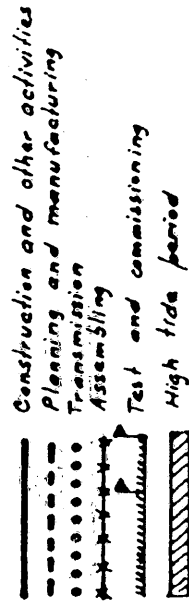 Construction and other activities
Planning and manufacturing
Transmission
Assembling
Test and commissioning
High tide period